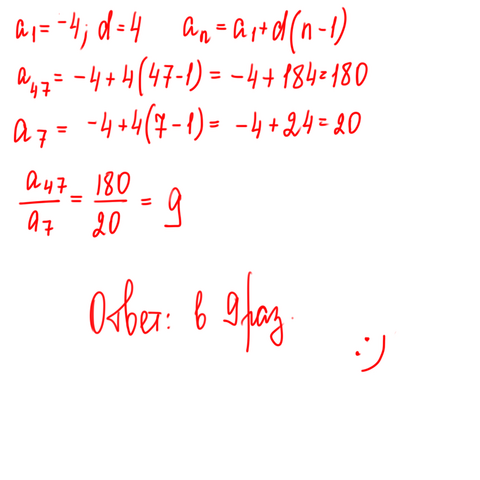 a₁ = -4; d = 4 aₙ = a₁ + d(n-1)
a₄₇ = -4 + 4(47-1) = -4 + 184 = 180
a₇ = -4 + 4(7-1) = -4 + 24 = 20
a₄₇/a₇ = 180/20 = 9
Ответ: в 9 раз.
:)